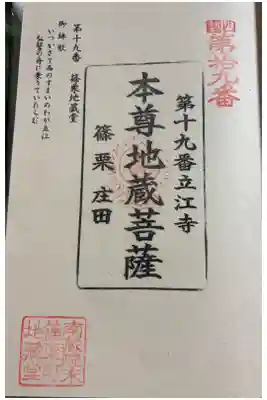 第拾九番
第十九番立江寺
本尊地蔵菩薩
篠栗 庄田
第十九番 篠栗地蔵堂
御詠歌
いつかさて西のすまいのわが立江
弘誓の舟に乗りていたらむ
地蔵堂